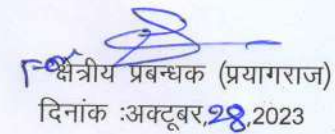 For क्षेत्रीय प्रबन्धक (प्रयागराज)
दिनांक :अक्टूबर,28,2023